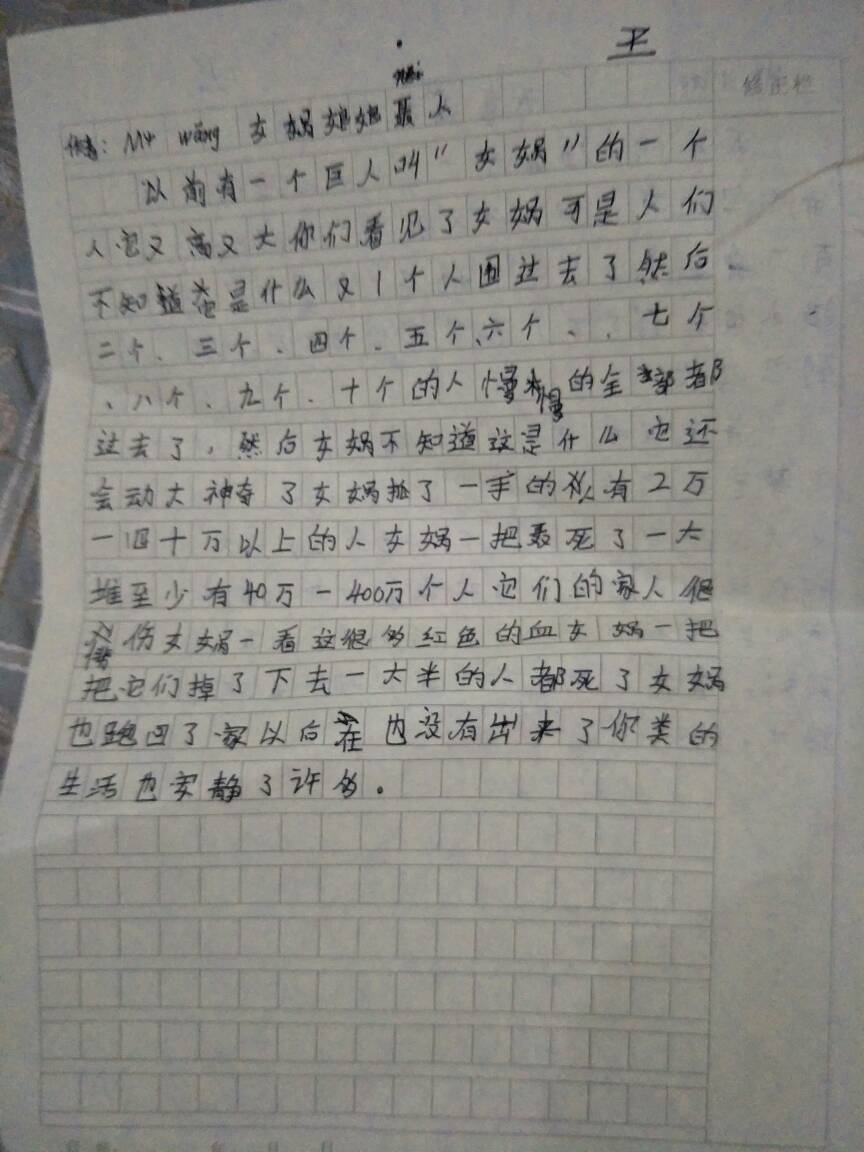 王
作者: Mr wāng 女娲姐姐聂人
以前有一个巨人叫“女娲”的一个
人它又高又大你们看见了女娲可是人们
不知道是什么又1个人围过去了然后
二个、三个、四个、五个、六个、、七个
、八个、九个、十个的人慢慢的全部都
过去了,然后女娲不知道这是什么它还
会动太神奇了女娲抓了一手的人有2万
一四十万以上的人女娲一把聂死了一大
堆至少有40万一400万个人它们的家人很
伤女娲一看这很多红色的血女娲一把
把它们掉了下去一大半的人都死了女娲
也跑回了家以后在也没有出来了你类的
生活也安静了许多。